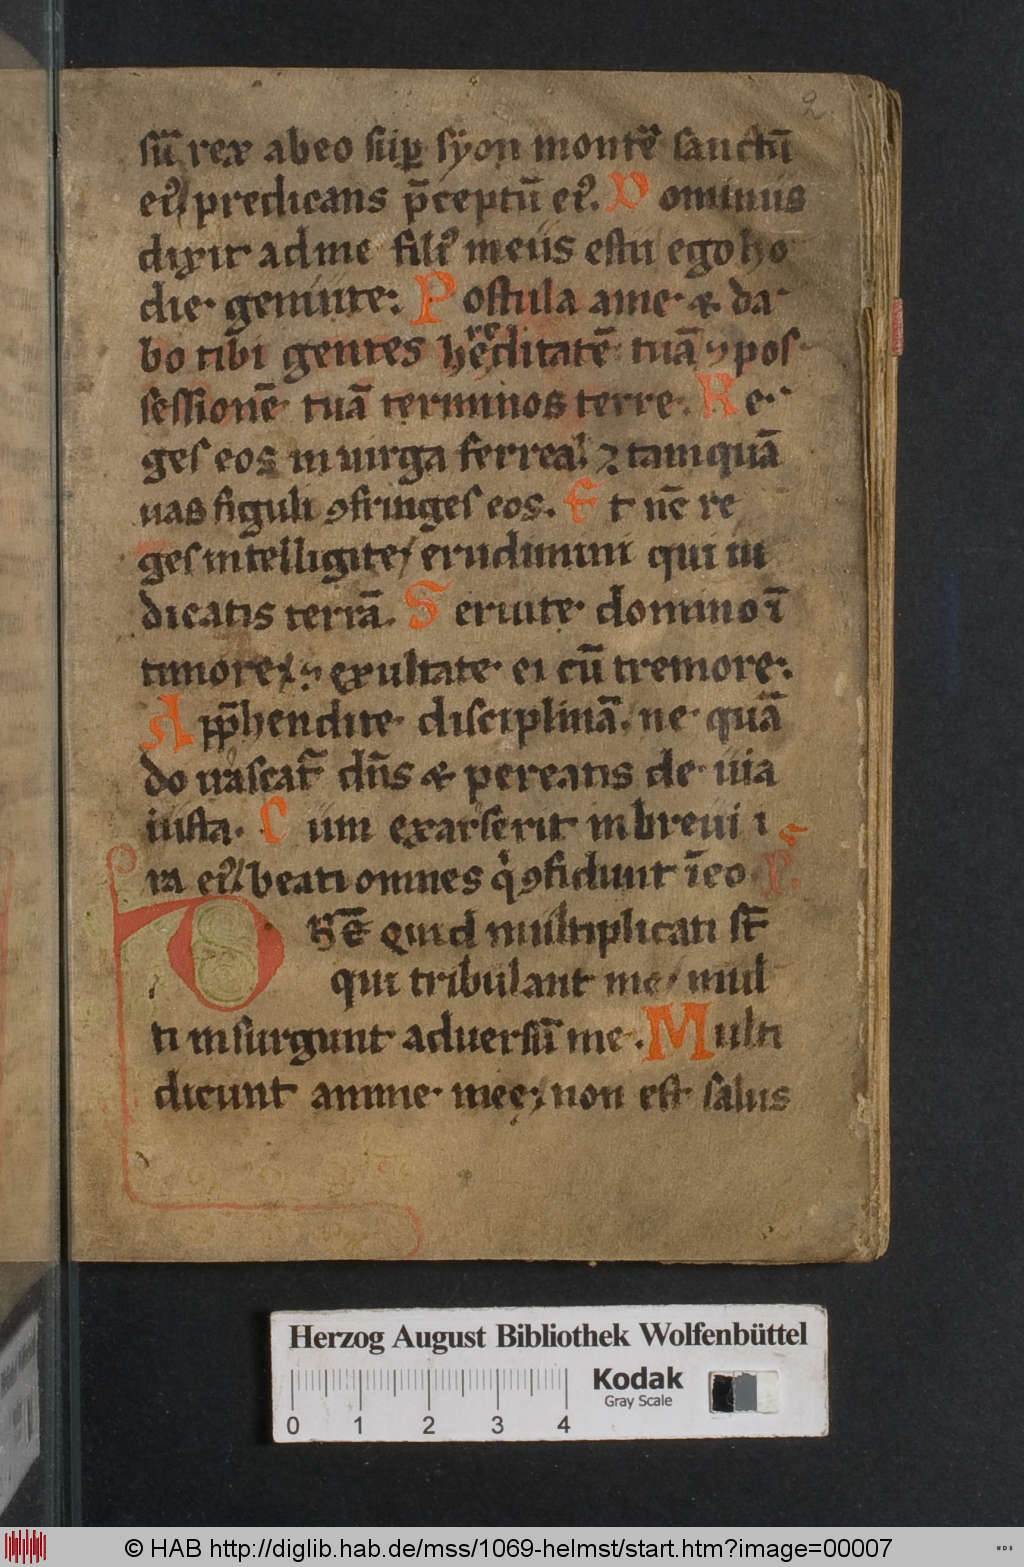 2.
sū rex abeo suꝑ syon montē sanctū
eiꝰ predicans p̄ceptū eiꝰ. Dominus
dixit ad me filiꝰ meus es tu ego ho
die genui te. Postula a me et da
bo tibi gentes hereditatē tuā ⁊ pos
sessionē tuā terminos terre. Re
ges eos in uirga ferrea ⁊ tamquā
uas figuli ꝯfringes eos. Et nc̄ re
ges intelligite erudimini qui iu
dicatis terrā. Seruite domino ī
timore ⁊ exultate ei cū tremore.
Appͤhendite disciplinā ne quā
do irascat᷑ dn̄s et pereatis de uia
iusta. Cum exarserit in breui i
ra eiꝰ beati omnes qͥ ꝯfidunt ī eo
Dn̄e Quid multiplicati sт̄
qui tribulant me mul
ti insurgunt aduersū me. Multi
dicunt anime mee non est salus
Herzog August Bibliothek Wolfenbüttel
Kodak
Gray Scale
0 1 2 3 4
© HAB http://diglib.hab.de/mss/1069-helmst/start.htm?image=00007